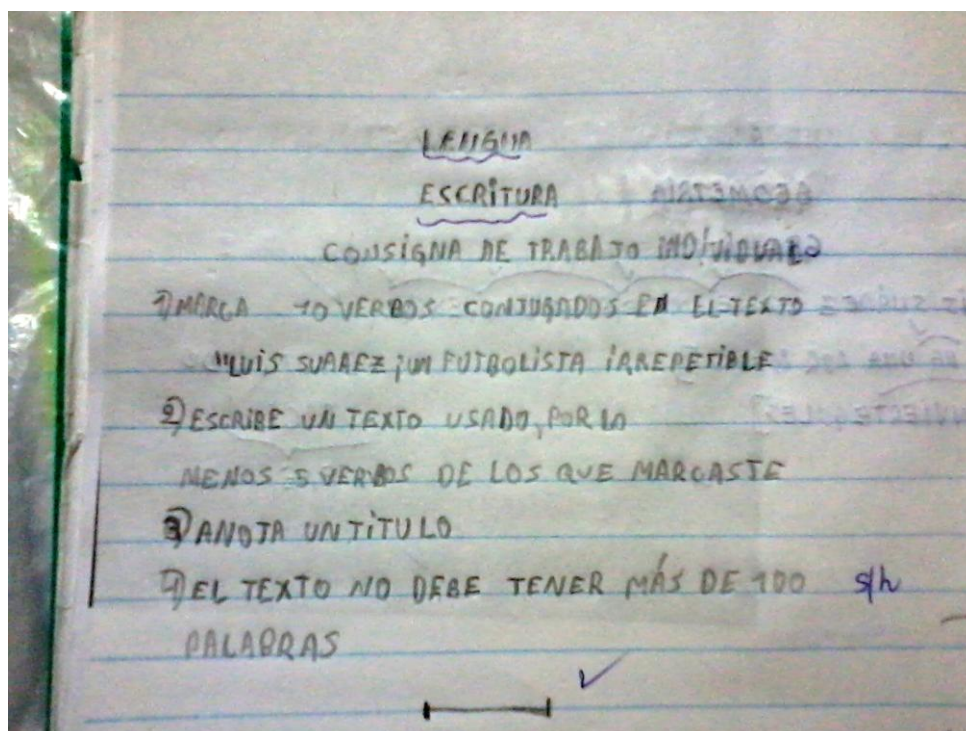 LENGUA
ESCRITURA
CONSIGNA DE TRABAJO INDIVIDUAL
1) MARCA 10 VERBOS CONJUGADOS EN EL TEXTO
"LUIS SUAREZ ¡UN FUTBOLISTA IRREPETIBLE
2) ESCRIBE UN TEXTO USADO, POR LO
MENOS 5 VERBOS DE LOS QUE MARCASTE
3) ANOTA UN TÍTULO
4) EL TEXTO NO DEBE TENER MÁS DE 100 s/h
PALABRAS